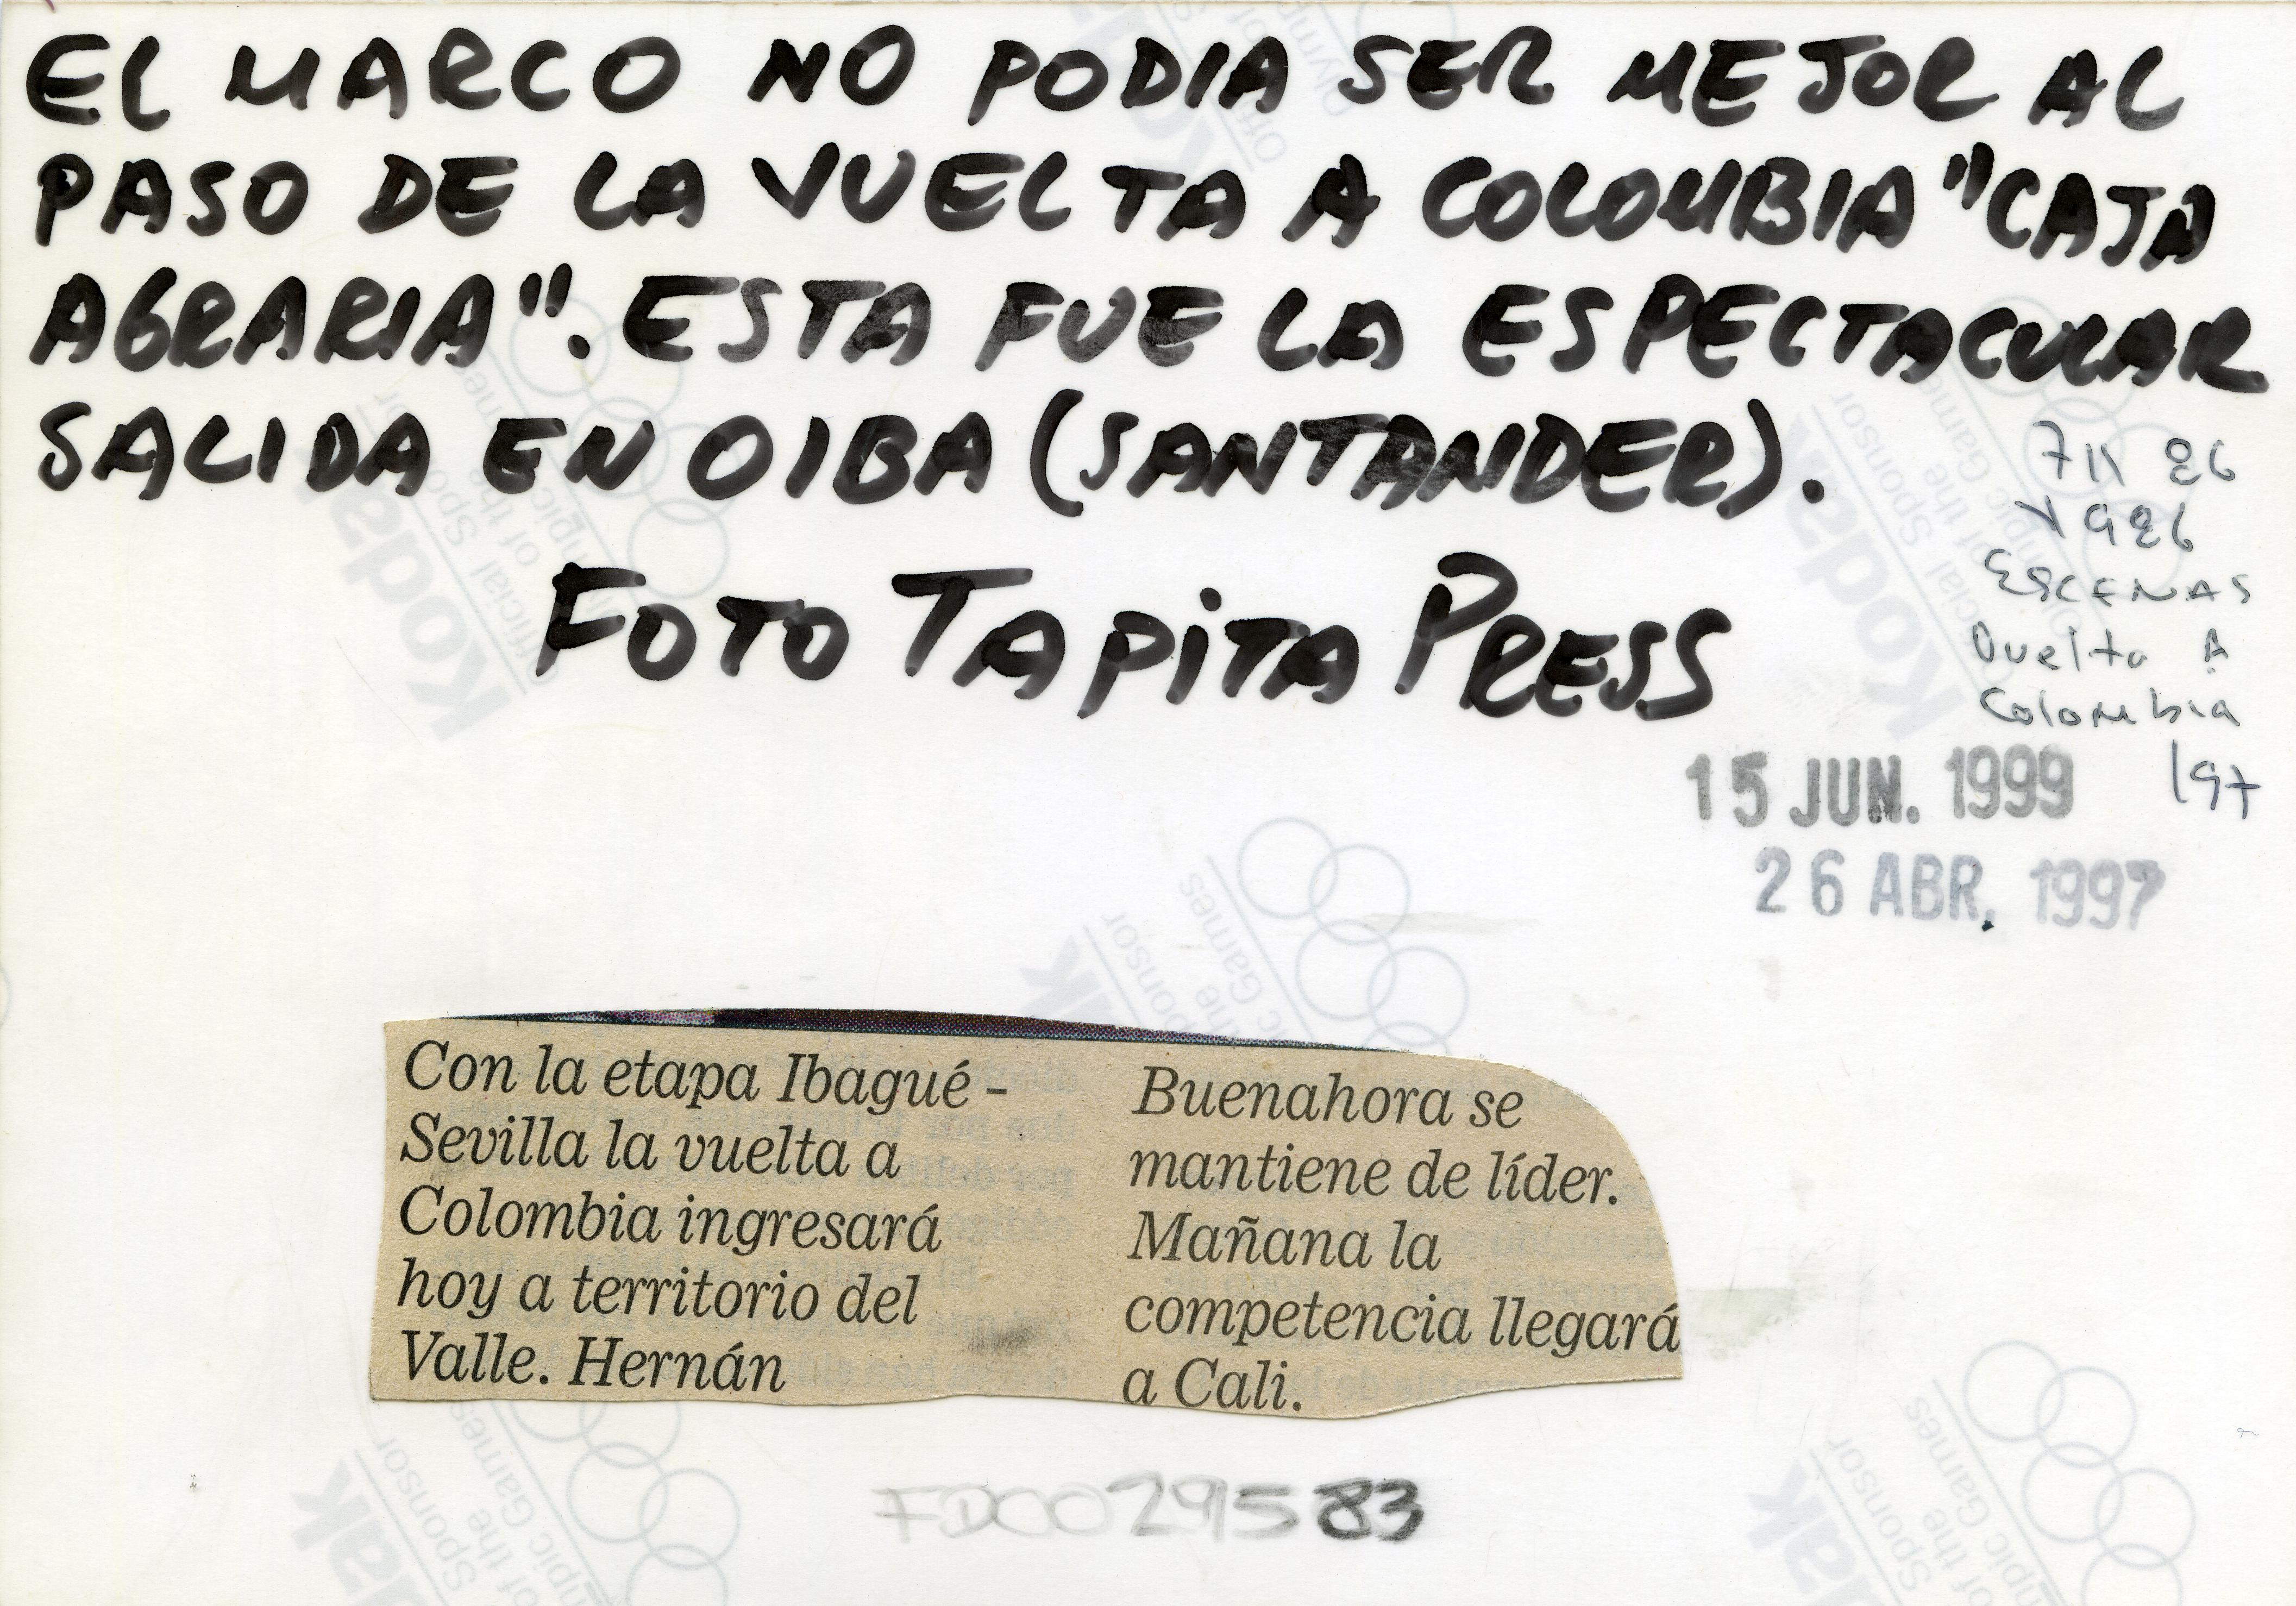 EL MARCO NO PODIA SER MEJOR AL
PASO DE LA VUELTA A COLOMBIA "CAJA
AGRARIA". ESTA FUE LA ESPECTACULAR
SALIDA EN OIBA (SANTANDER).
FOTO TAPITA PRESS
ESCENAS
Vuelta A
Colombia
15 JUN. 1999
26 ABR. 1997
Con la etapa Ibagué -
Sevilla la vuelta a
Colombia ingresará
hoy a territorio del
Valle. Hernán
Buenahora se
mantiene de líder.
Mañana la
competencia llegará
a Cali.
FD0029583
Kodak
Official Sponsor
of the
Olympic Games